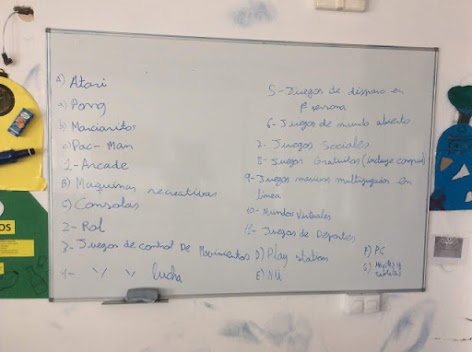 a) Atari
a) Pong
b) Marcianitos
c) Pac-Man
1-Arcade
B) Maquinas recreativas
C) Consolas
2- Rol
3- Juegos de control De Movimientos
4- \\ \\ lucha
5- Juegos de disparo en
6- Juegos de mundo abierto
7- Juegos Sociales
8- Juegos Gratuitos (incluye compras)
9- Juegos masivos multijugador en
linea
10- Mundos Virtuales
12- Juegos de Deportes
D) Play station
E) Wii
F) PC
G) Móviles y
tabletas
OS